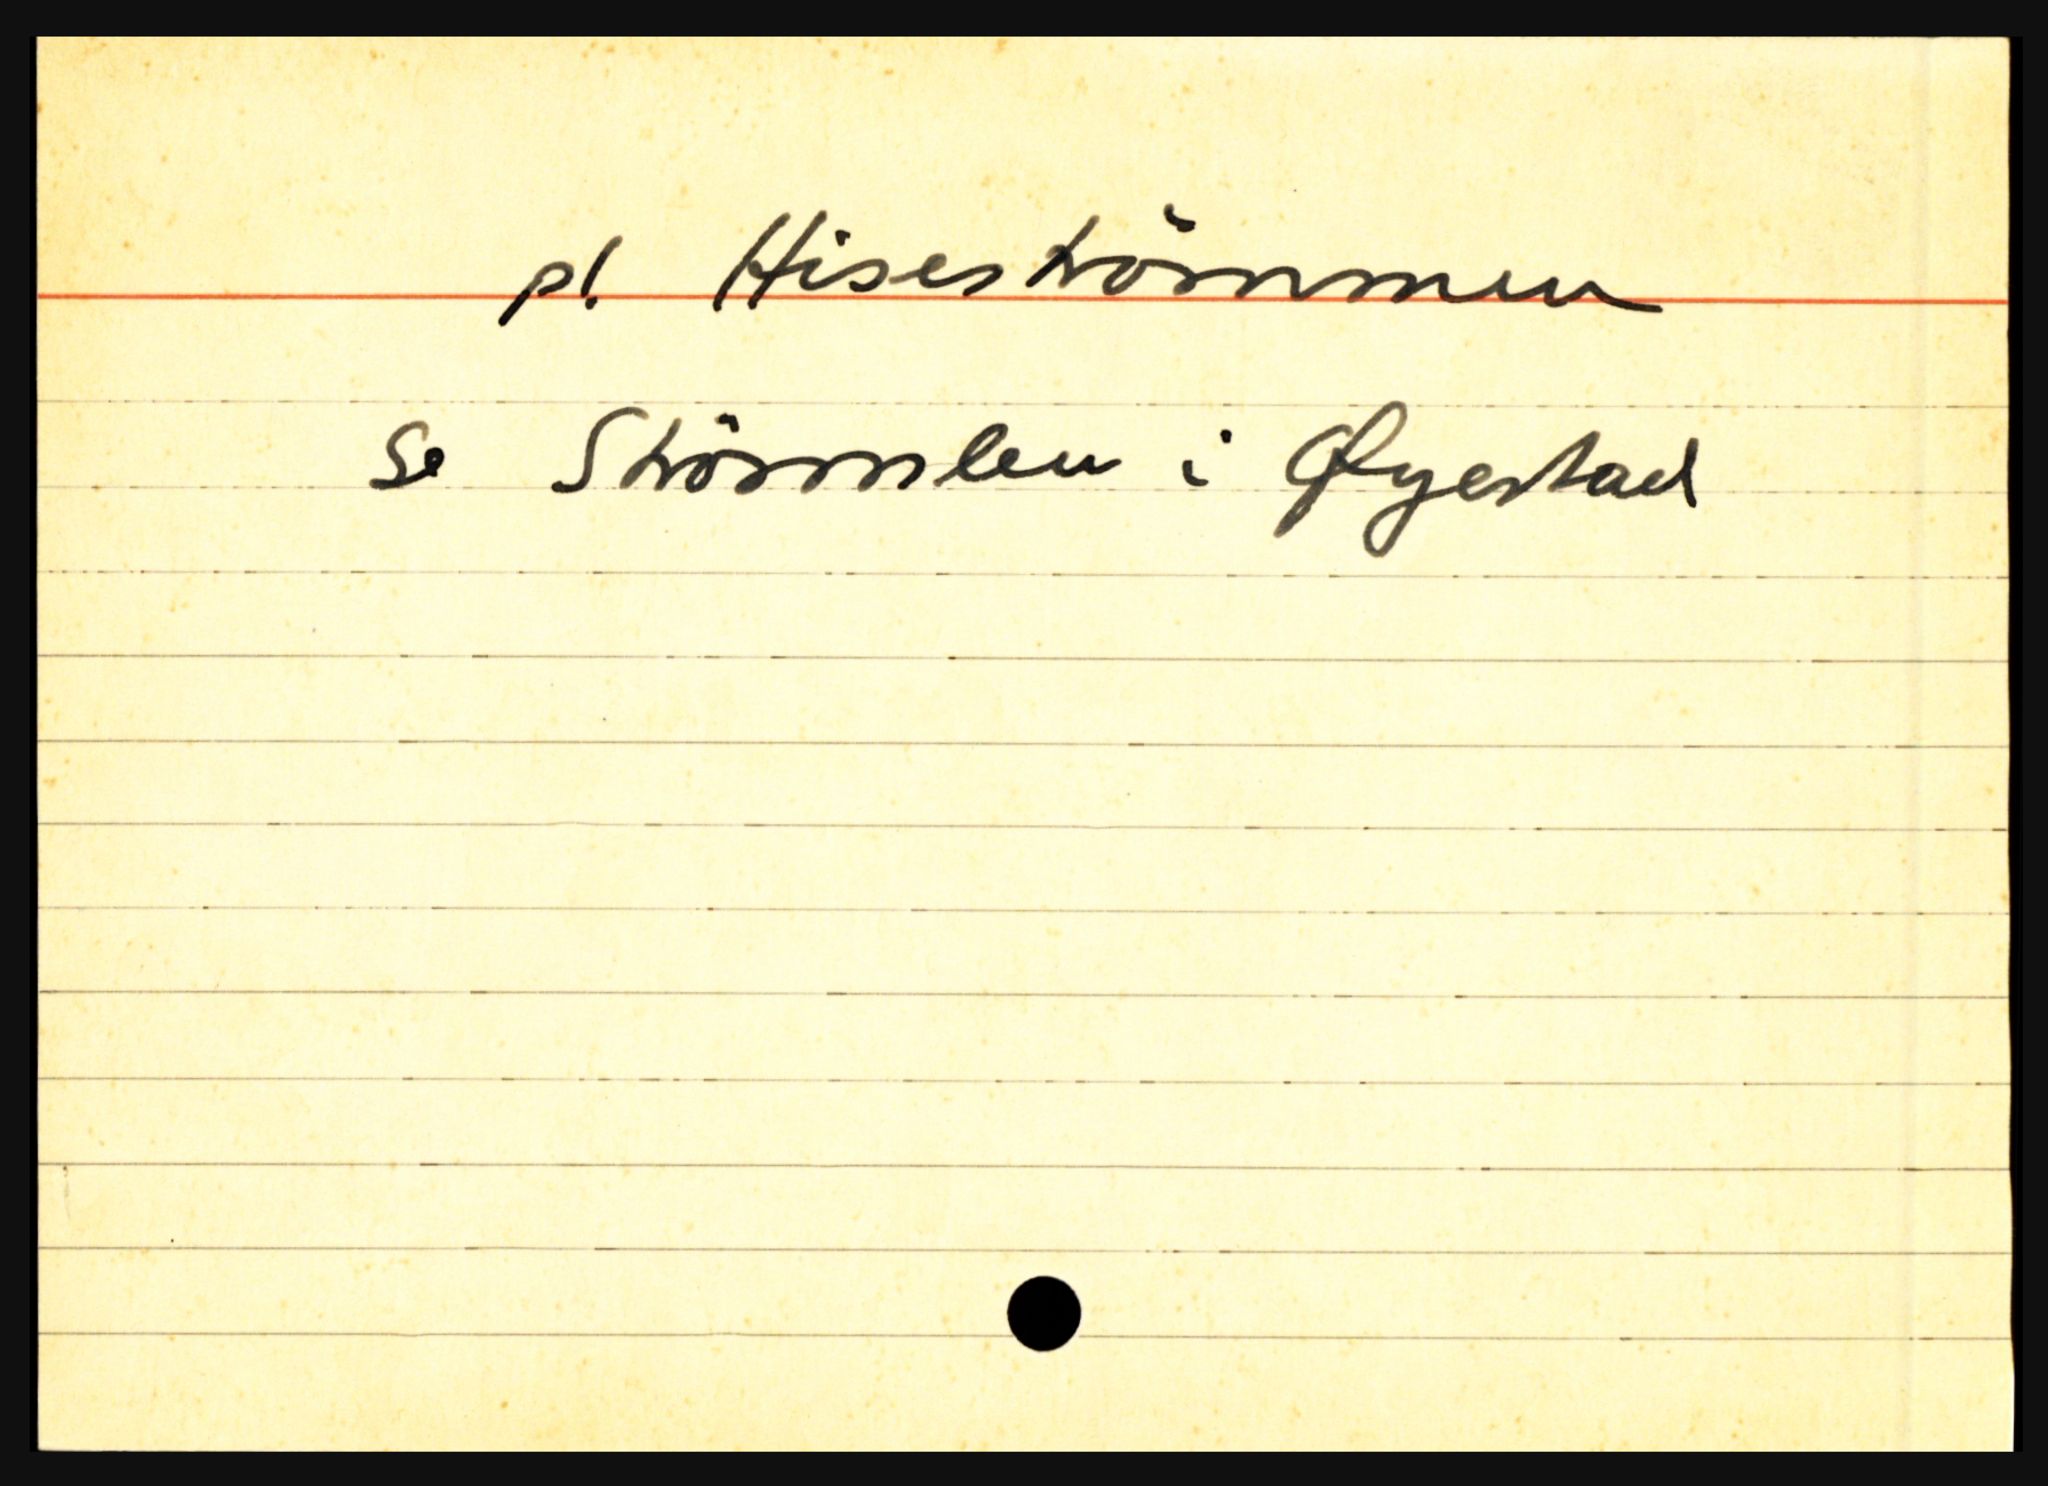 pl. Hiseströmmen
Se Strömmen i Øyestad